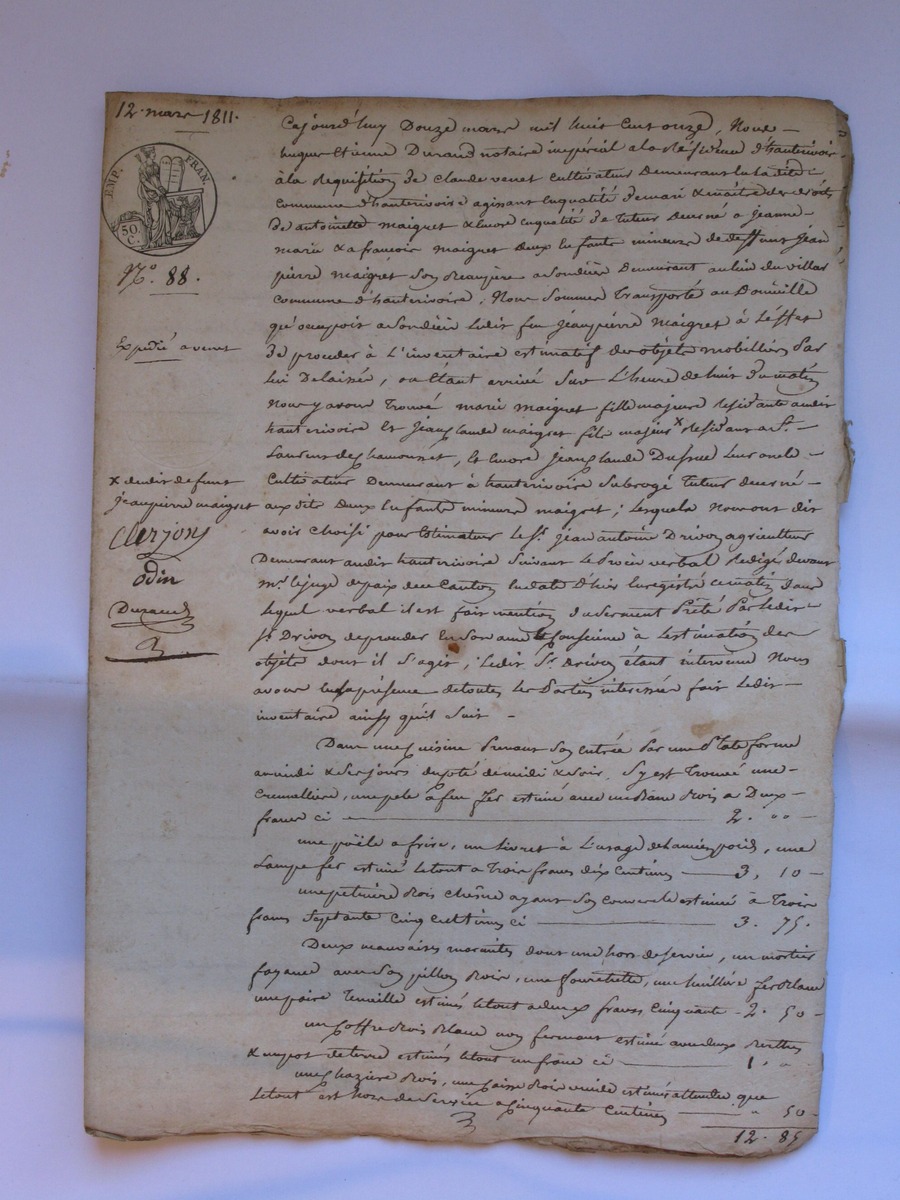 12. mars 1811.
EMP. FRAN.
50 C.
N.º 88.
Expédié a venet
x dudit defunt
jeanpierre maigret
Clerjon
odin
Durand
Cejourd'huy Douze mars mil huit cent onze, Nous
hugue Etienne Durand notaire imperial a la Residence d'hauterivoire
à la Requisition de claude venet cultivateur Demeurant en la dite
commune d'hauterivoire agissant en qualité de mari & maitre des droits
de antoinette maigret & encore en qualité de tuteur decerné a jeanne
marie & a francois maigret deux enfants mineurs de deffunt jean
pierre maigret son beaupère a son décès Demeurant au lieu du villar
commune d'hauterivoire; Nous sommes transporté au Domicille
qu'occupoit a son décès ledit feu jeanpierre maigret à l'effet
de proceder à L'inventaire estimatif des objets mobilliers par
lui Delaissés, ou étant arrivé sur l'heure de huit du matin
Nous y avons trouvé marie maigret fille majeure residante audit
hauterivoire et jeanclaude maigret fils majeur x residant a St.
Laurent de chamousset, et encore jeanclaude Dussud leur oncle
Cultivateur Demeurant à hauterivoire subrogé tuteur decerné
aux dits deux enfants mineurs maigret; lesquels Nous ont dit
avoir choisi pour Estimateur le Sr. jean antoine Drivon agriculteur
Demeurant audit hauterivoire suivant le Procès verbal Redigé devant
mr. le juge de paix du Canton en date d'hier Enregistré ce matin dans
lequel verbal il est fait mention du serment Prêté par ledit
Sr. Drivon de proceder en son ame & Conscience à l'estimation des
objets dont il s'agit; Ledit Sr. drivon étant intervenu Nous
avons en la présence de toutes les Parties interessées fait ledit
inventaire ainsy qu'il suit -
Dans une cuisine Prenant son entrée par une Plateforme
a midi & ses jours du côté de midi & soir, s'y est trouvé une
Cremallière, une pele à feu fer estimé avec un Banc Bois a Deux
francs ci 2. " "
une poële a frire, un livret à l'usage de l'ancien poid, une
Lampe fer estimé le tout a trois francs dix Centimes 3, 10
une petrière Bois chêne ayant son couvercle estimée à trois
francs septante cinq centimes ci 3. 75.
Deux mauvaises marmites dont une hors de service, un mortier
fayance avec son pillon Bois, une fourchette, une cuillière fer blanc
une paire tenaille estimés le tout a deux francs cinquante 2. 50
un coffre Bois blanc non fermant estimé avec deux
& un pot de terre estimés le tout un franc ci 1. "
une chazière Bois, une caisse Bois vuide estimés attendu que
le tout est hors de service a Cinquante Centimes " 50
12. 85